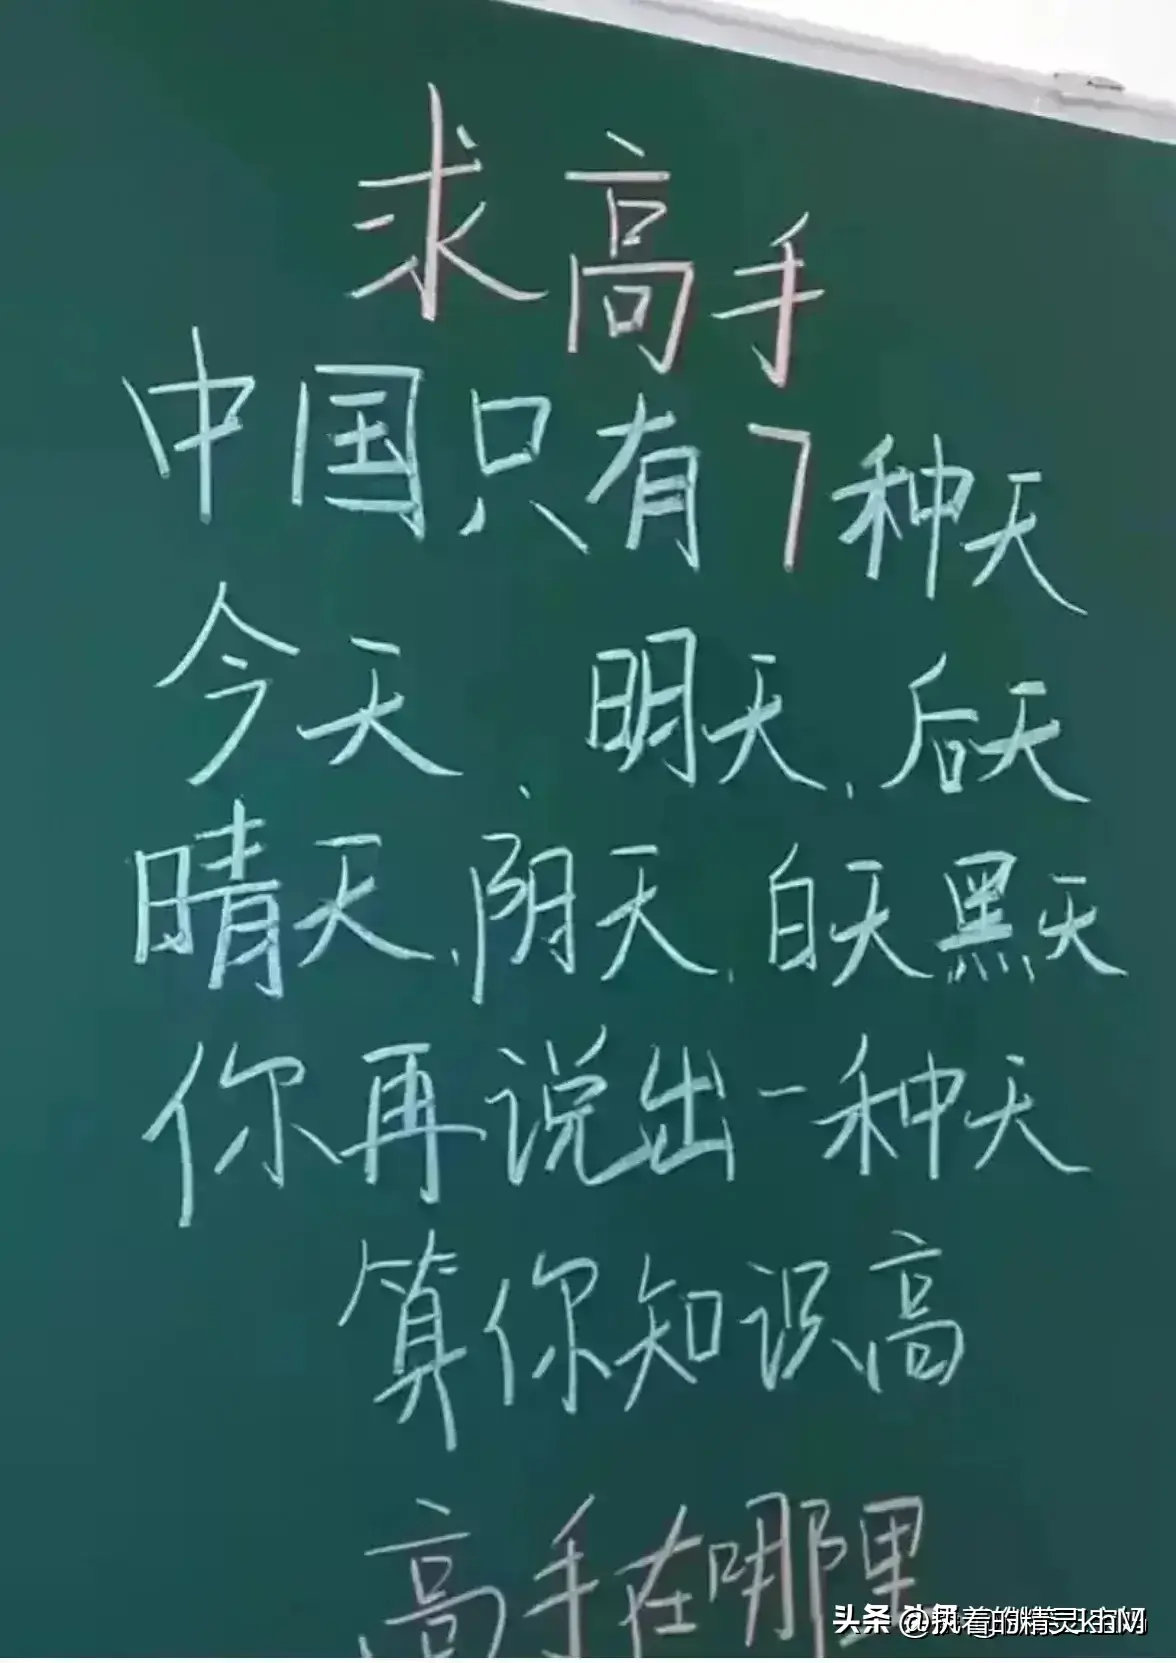 求高手
中国只有7种天
今天、明天、后天
晴天、阴天、白天黑天
你再说出一种天
算你知识高
高手在哪里
头条 @执着的精灵